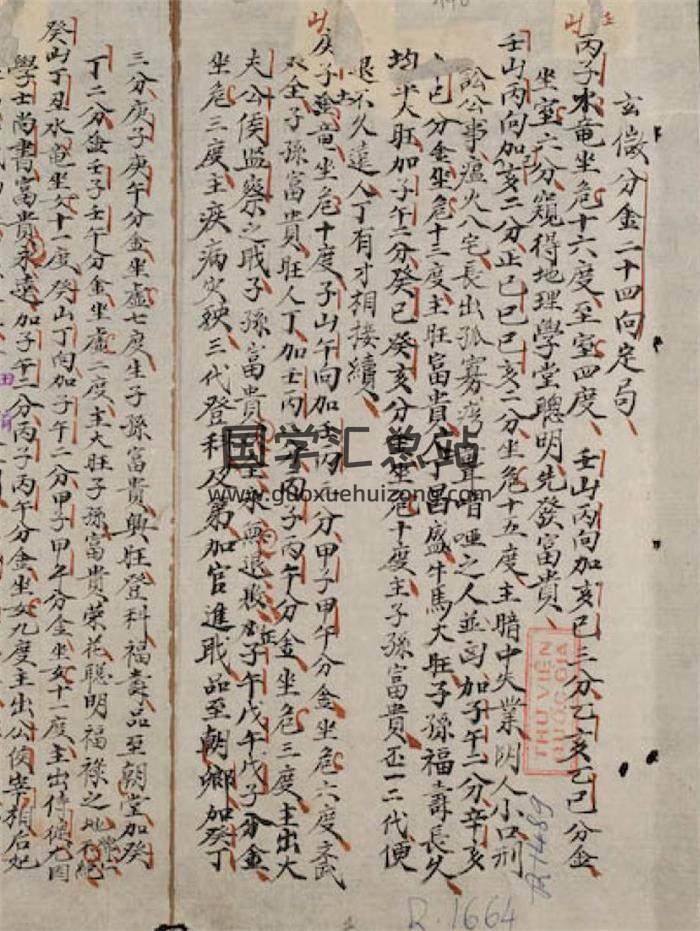 玄微分金二十四向定局
丙子水竜坐危十六度至室四度 壬山丙向加亥巳三分乙亥乙巳分金
坐室六分窺得地理學堂聰明先發富貴
壬山丙向加亥二分正己巳己亥二分坐危十五度主暗中失業陰人小口刑
訟公事瘟火八宅長出孤寡 聾喑啞之人並 加子午二分辛亥
辛巳分金坐危十三度主旺富貴人丁昌盛牛馬大旺子孫福壽長久
均平大旺加子午二分癸巳癸亥分金坐危十度主子孫富貴 一二代便
退不久遠人丁有才相接續
庚子土竜坐危十度子山午向加壬丙二分甲子甲午分金坐危六度文武
双全子孫富貴旺人丁加壬丙 丙子丙午分金坐危三度主出大
夫公侯監察之職子孫富貴 永無退敗加子午戊午戊子分金
坐危三度主疾病災殃三代登科及第加官進職品至朝鄉加癸丁
三分庚子庚午分金坐虛七度生子孫富貴興旺登科福壽品至朝堂加癸
丁二分金壬子壬午分金坐虛二度主大旺子孫富貴荣花聰明福祿之地
癸山丁丑水竜坐女十一度癸山丁向加子午二分甲子甲午分金坐女十一度主出
學士尚書富貴永遠加子午二分丙子丙午分金坐女九度主出公侯宰相后妃
国学汇总站
www.guoxuehuizong.com
THƯ VIỆN
QUỐC GIA
R.1489
R.1664